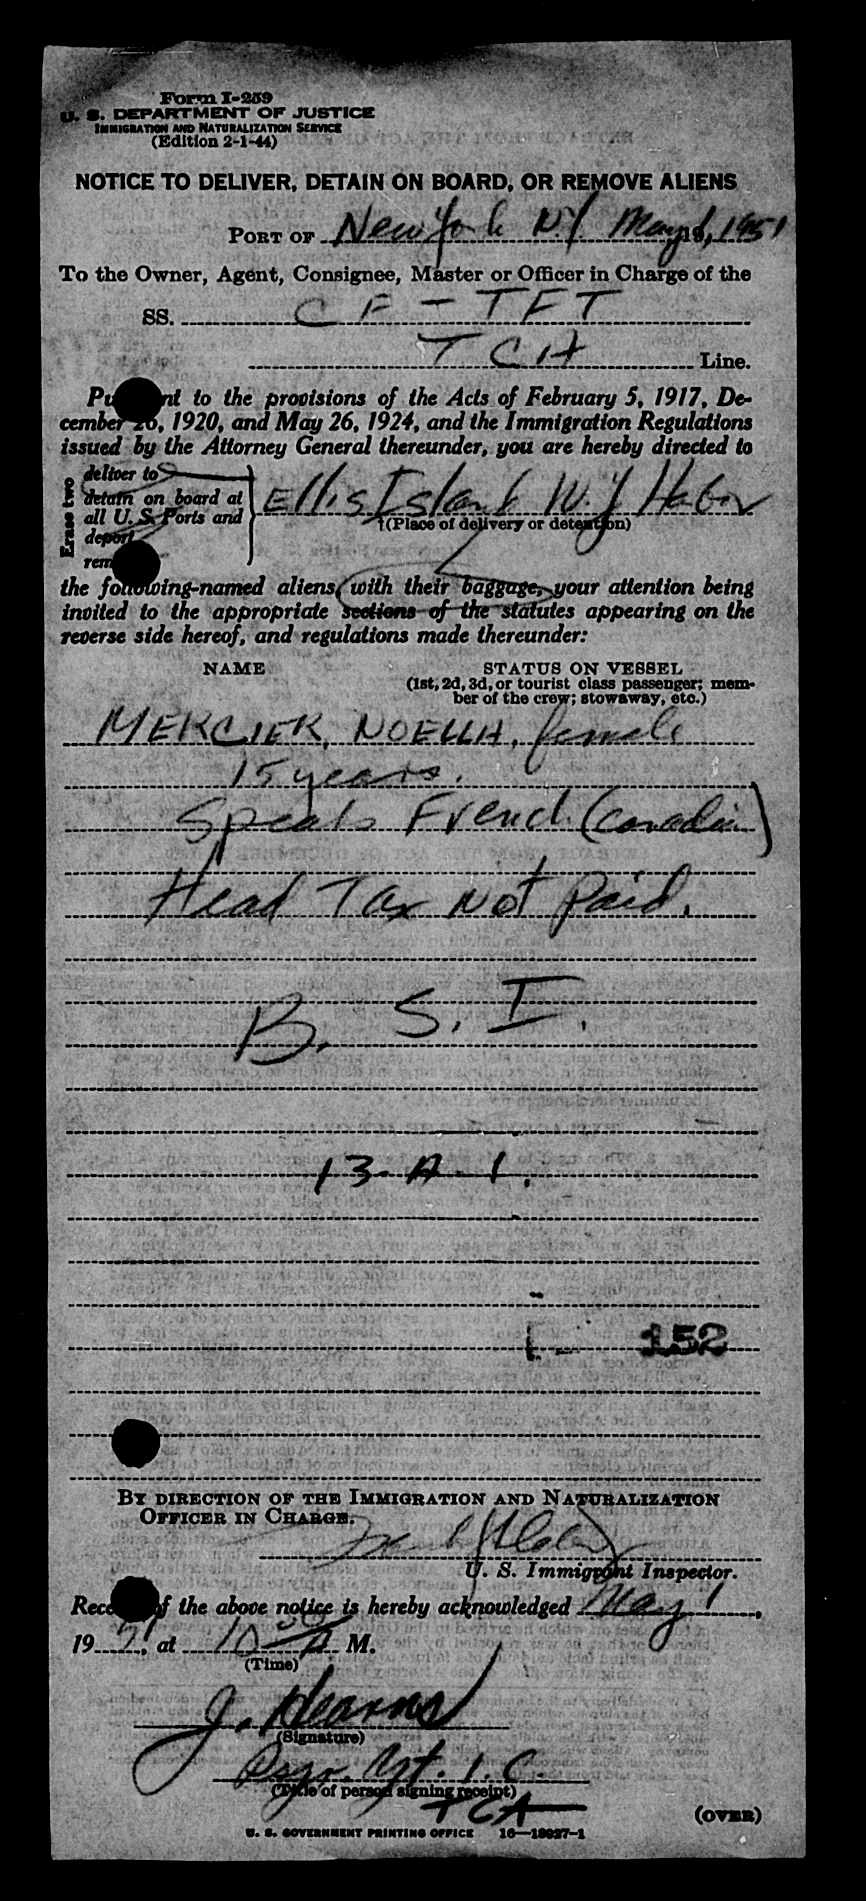 Form I-259
U. S. DEPARTMENT OF JUSTICE
IMMIGRATION AND NATURALIZATION SERVICE
(Edition 2-1-44)
NOTICE TO DELIVER, DETAIN ON BOARD, OR REMOVE ALIENS
PORT OF New York N.Y May 1, 1951
To the Owner, Agent, Consignee, Master or Officer in Charge of the
SS. CF-TFT
TCA Line.
Pu nt to the provisions of the Acts of February 5, 1917, De-
cember 26, 1920, and May 26, 1924, and the Immigration Regulations
issued by the Attorney General thereunder, you are hereby directed to
Erase two
deliver to
detain on board at
all U. S. Ports and
deport
rem
Ellis Island N.Y Harbor
†(Place of delivery or detention)
the following-named aliens, with their baggage, your attention being
invited to the appropriate sections of the statutes appearing on the
reverse side hereof, and regulations made thereunder:
NAME STATUS ON VESSEL
(1st, 2d, 3d, or tourist class passenger; mem-
ber of the crew; stowaway, etc.)
MERCIER, NOELLA, female
15 years.
Speaks French (Canadian)
Head Tax Not Paid.
B. S. I.
13-A-1.
152
BY DIRECTION OF THE IMMIGRATION AND NATURALIZATION
OFFICER IN CHARGE.
U. S. Immigrant Inspector.
Rece of the above notice is hereby acknowledged May 1,
1951, at 10 30 A M.
(Time)
J. Hearns
(Signature)
Psgr. Agt. I. C.
(Title of person signing receipt)
TCA
(OVER)
U. S. GOVERNMENT PRINTING OFFICE 16—18027-1